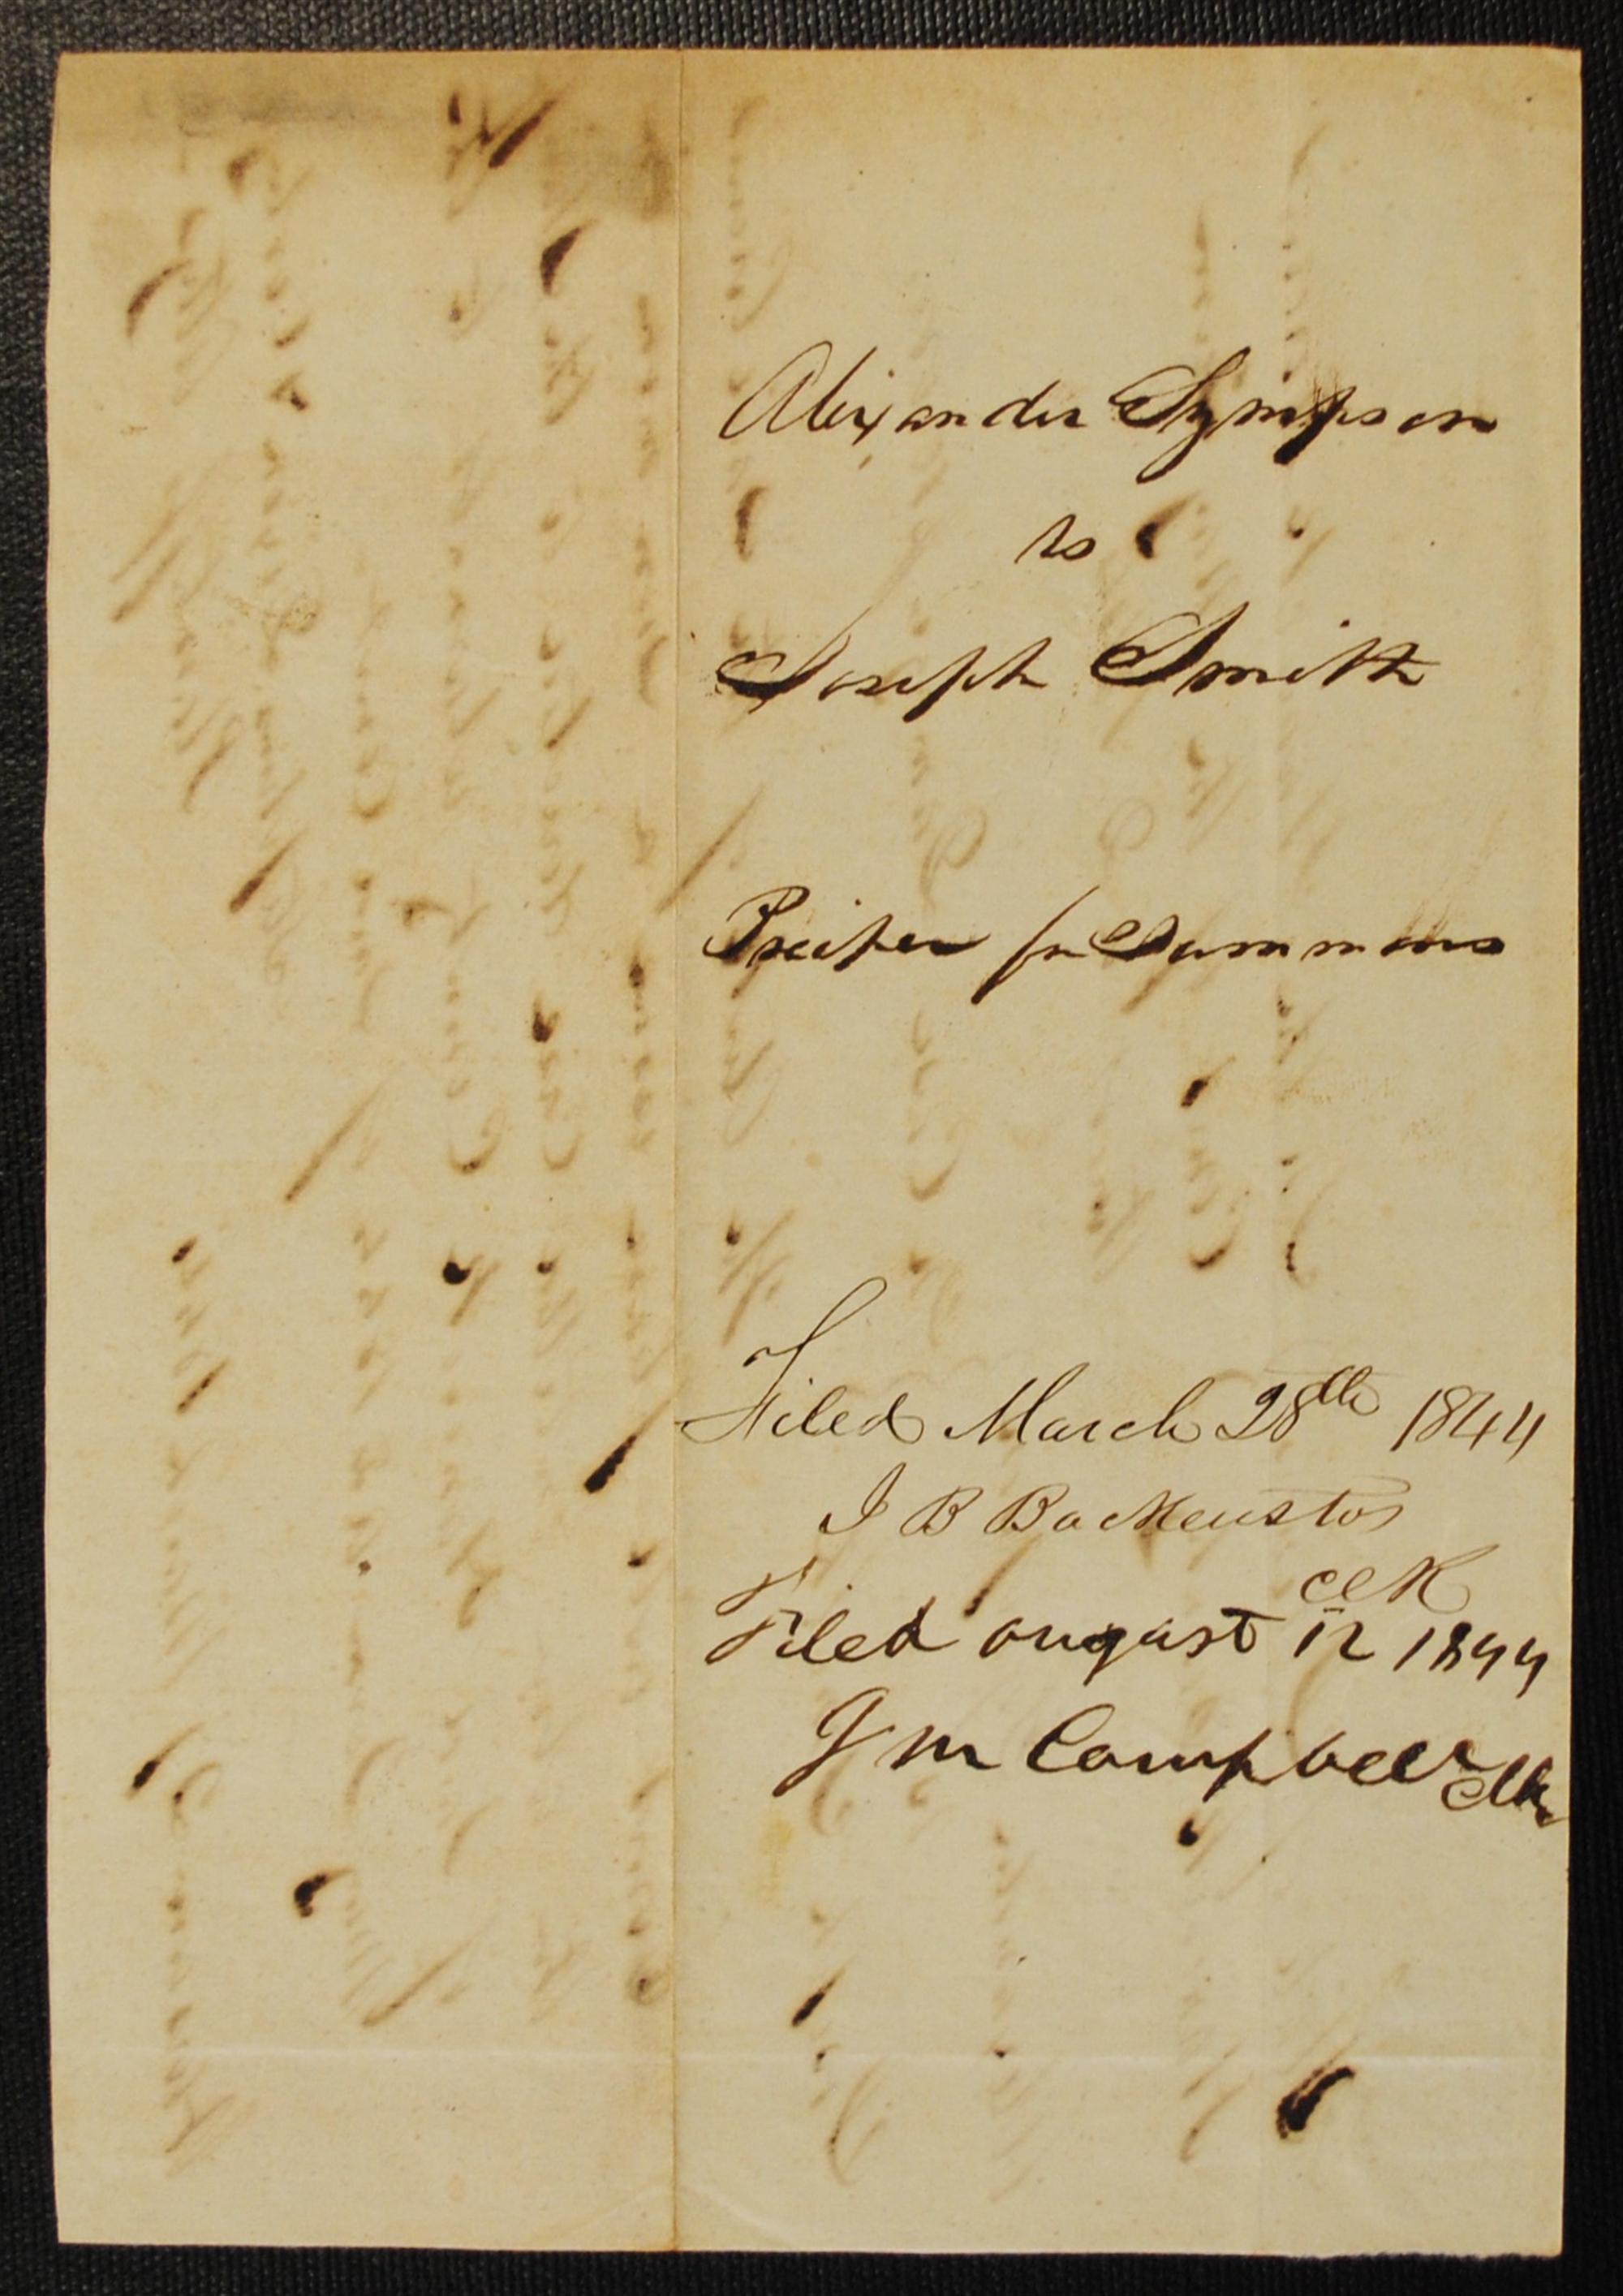 Alexander Sympson
vs
Joseph Smith
Precipe for Summons
Filed March 28th 1844
J B Backenstos
clk
Filed august 12 1844
J m Campbell clk